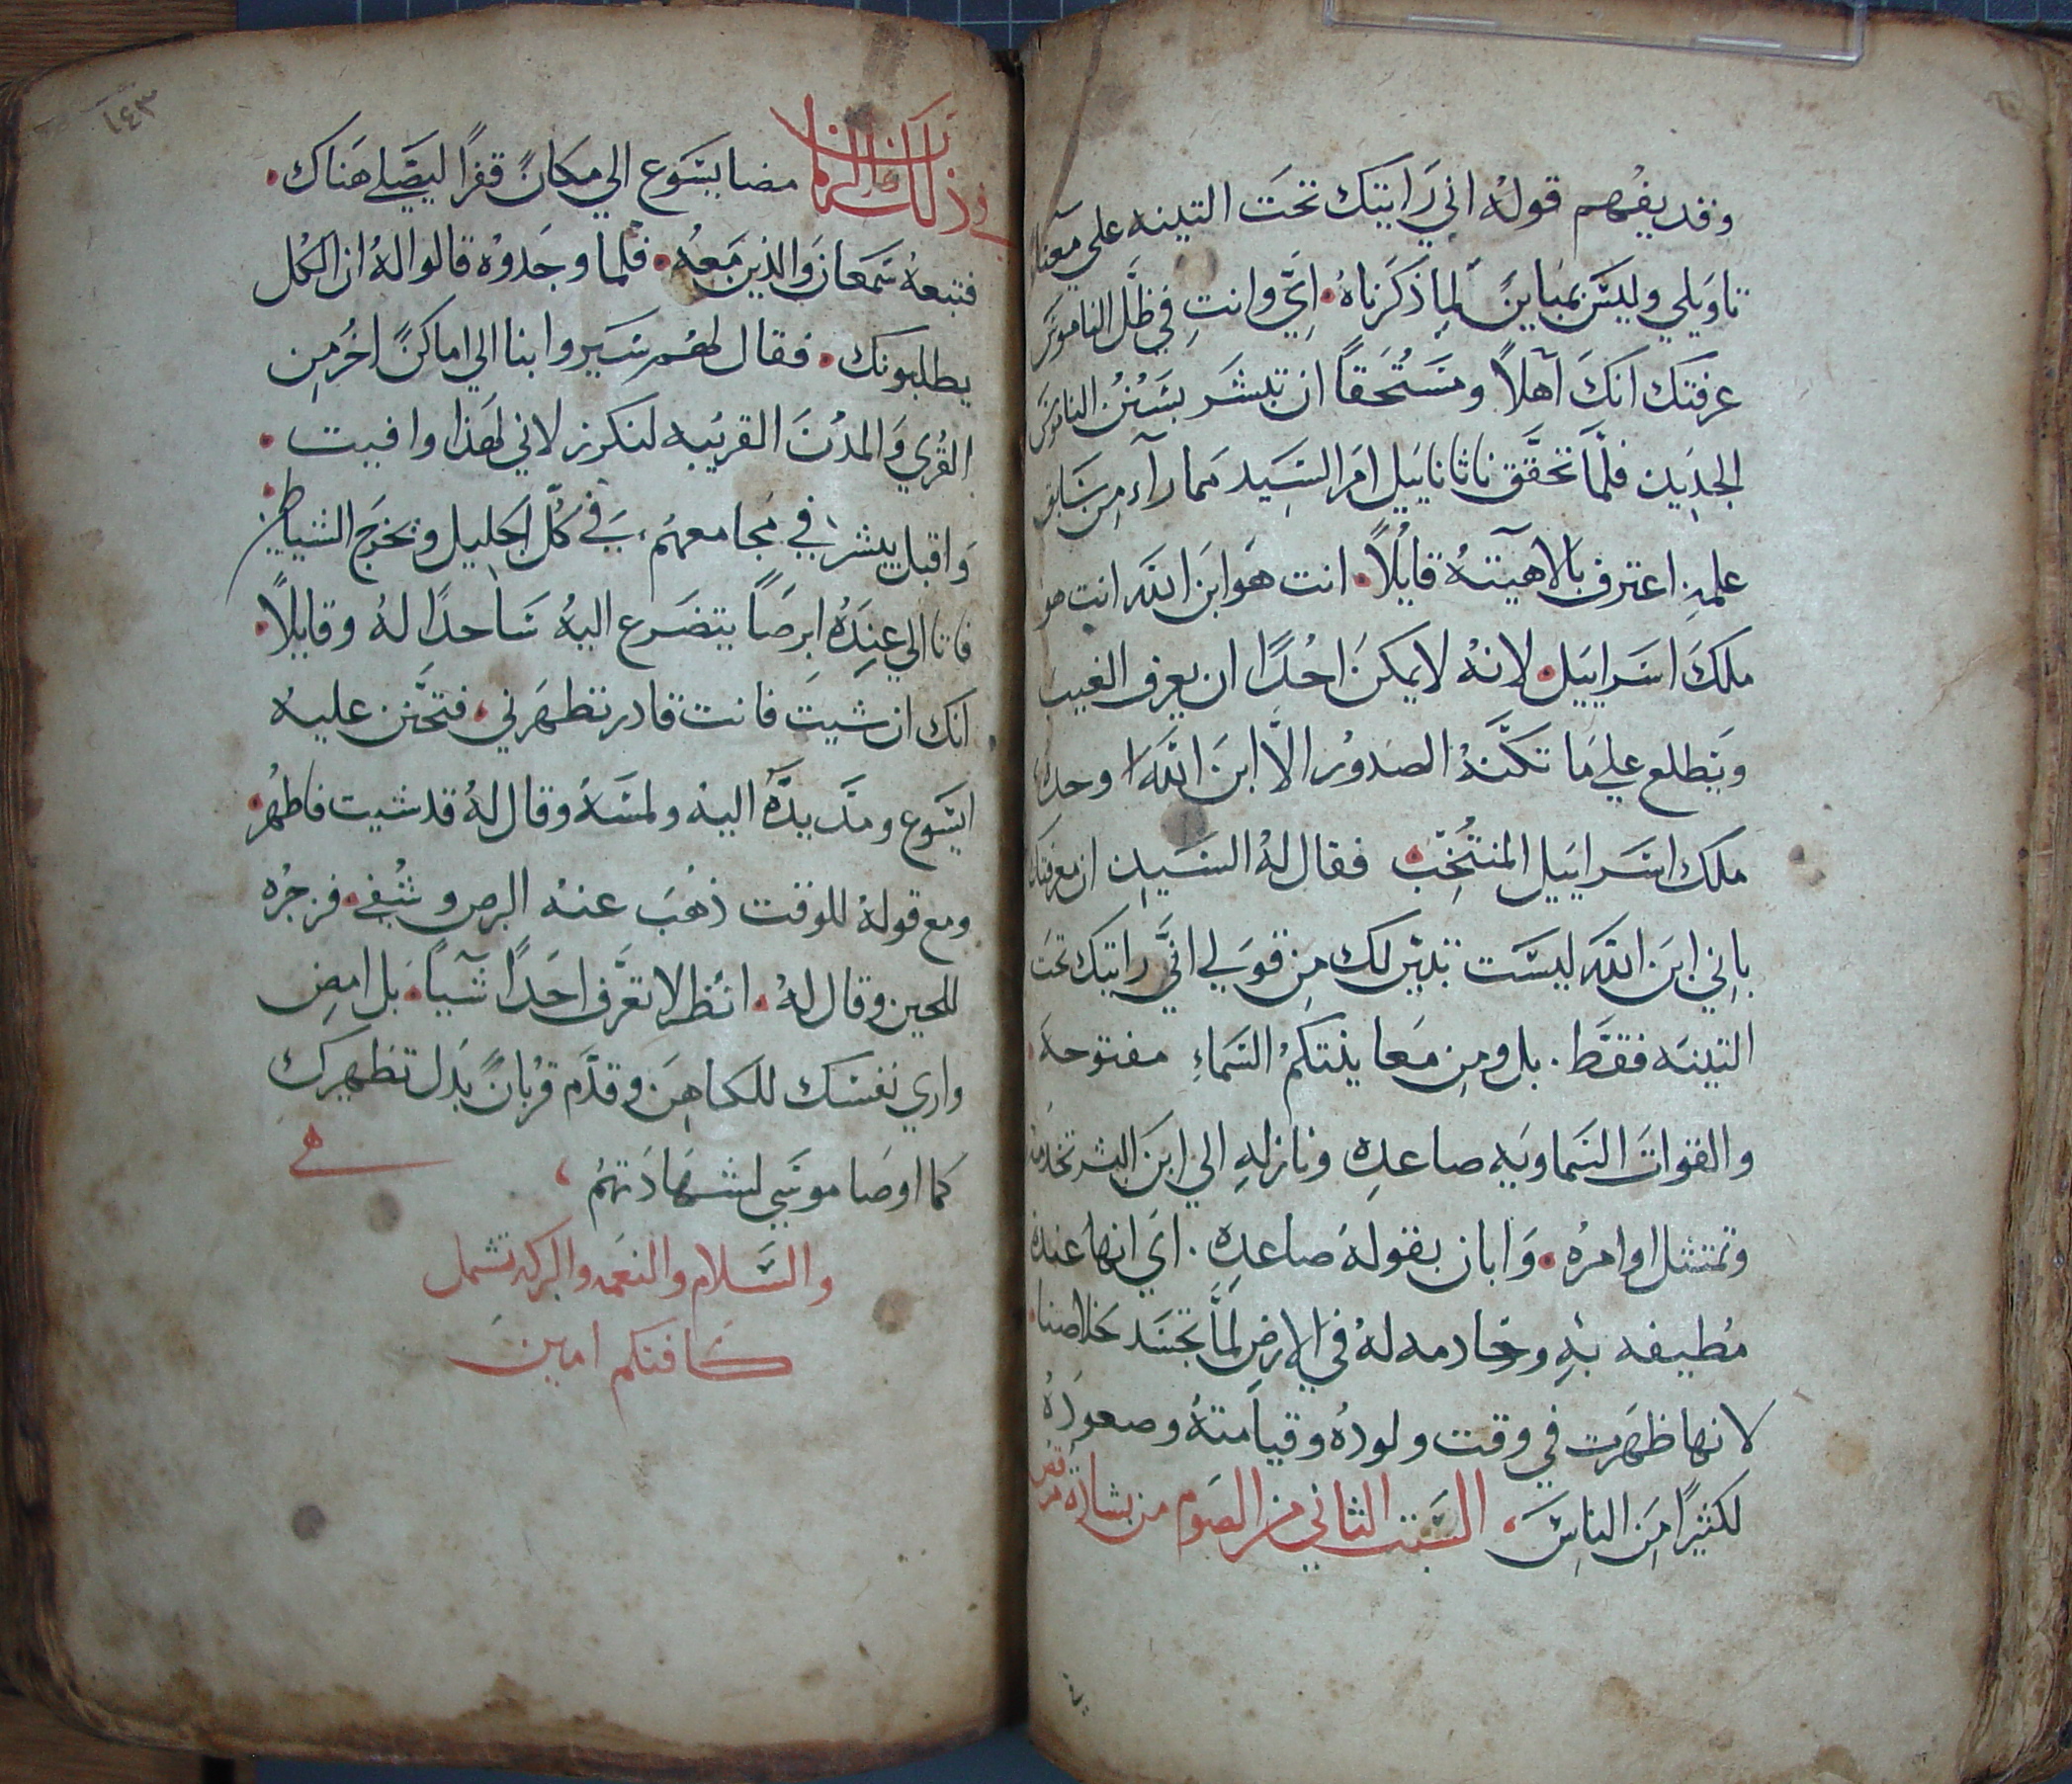 وقد يفهم قوله اني رَايتك تحَت التينه علي معَنا
تاوَيلي وليسَ بمبَاينً لما ذكَرناهُ. ايَّ وانتِ في ظل الناموسَ
عرفتك انكَ اهلاً ومسَتُحَقاً ان تبشَر بسَنُن الناموسَ
الجديَد فلمَا تحَقَّق ناثانايَيل امَر السَيَد مما رآء مِن سَابق
علمهِ اعترف بالاهيَتهُ قايُلاً. انت هَو ابَن اللّه انت هو
ملكَ اسَراييَل. لانهُ لا يمكنَ احُدًا ان يعرف الغيب
ويَطلع علي مَا تكَنَّهُ الصَدوُر الاَّ ابنَ اللّه وحدهُ
ملك اسَراييَل المنتُخِب. فقال لهُ السَيدِ ان معرفتك
بانِي ابنَ اللّه ليسَت تبَين لك مِن قوَلي انَّي رايتك تحَت
التينَه فقَط. بل ومِن مَعاينتكمُ السَماءِ مفتوحهَ.
والقوات السَماويَه صاعدِه ونازلهِ الي ابنَ البشر تخدمهُ
وتمتثل اوامرهُ. وَابان بقوله صاعدِه. ايَ انها عندهُ
مُطيفه بهِ وخادمه لهُ في الارض لمَّا تجسَد لخلاصنا.
لانها ظهَرت في وقت ولودهُ وقيَامتهُ وصعودهُ
لكثيرًا مِن الناسِ، السَبَت الثاني من الصَوم من بشارة مرقص
في ذلك الزمان مضا يسَوع الي مكانً قفرًا ليصَلي هَناك.
فتبعهُ سَمعَان وَالذين مَعهُ. فلما وجَدوهُ قالوا لهُ ان الكُل
يطلبونك. فقال لهُم سَيروا بنا الي اماكنً اخُر مِن
القُري وَالمدُنَ القريبَه لنكرز لاني لهَذا وافيت.
وَاقبل يبشر في مَجامعهُم، في كُل الجليل ويخرَج الشياطين.
فاتا الي عِندَهُ ابرصَاً يتضَرع اليهُ سَاجدًا لهُ وقايلاً.
انك ان شيتَ فانت قادر تطهَرني. فتحَنن عليه
ايسَوع ومَدَّ يدَّهُ اليهُ ولمسَهُ وقال لهُ قد شيت فاطهُر.
ومع قولهُ للوقت ذهُبَ عنهُ البرص وشُفي. فزجرُه
للحين وقال لهُ. انظر لا تعَرف احَدًا شَياً. بل امضِ
واري نفسَك للكاهِن وقدَّم قربُانً بدَل تطهيرك
كما اوصَا موسَي لشهَادَتهمُ،
والسَلام والنعمَه والبركه تشمل
كَافتكم امين
١٤٣